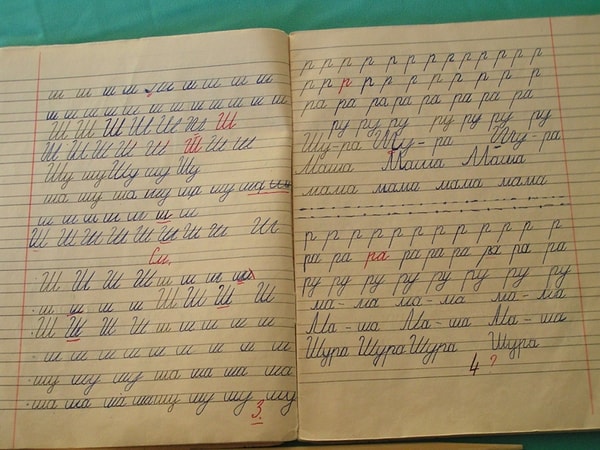 ш ш ш ш ш ш ш ш ш
ш ш ш ш ш ш ш ш ш ш ш
Ш Ш Ш Ш Ш Ш Ш
Ш Ш Ш Ш Ш Ш Ш Ш
Шу шу Шу шу Шу
ша шу ша шу ша шу ша
ш ш ш ш ш ш ш
Ш Ш Ш Ш Ш Ш Ш Ш Ш
См.
Ш Ш Ш Ш ш ш ш ш
ш ш ш ш Ш Ш Ш Ш
Ш Ш Ш Ш ш ш ш ш ш
ш ш ш ш ш ш ш ш ш
шу шу шу ша ша ша ша
ша ша ша ша шу шу шу шу
3.
р р р р р р р р р р р р р
р р р р р р р р р р р
ра ра ра ра ра ра ра ра
ру ру ру ру ру ру
Шу-ра Шу-ра Шу-ра
Маша Маша Маша
мама мама мама мама
р р р р р р р р р р р
ра ра ра ра ра ра ра ра ра
ру ру ру ру ру ру ру ру
ма-ма ма-ма ма-ма
Ма-ша Ма-ша Ма-ша
Шура Шура Шура Шура
4 ?